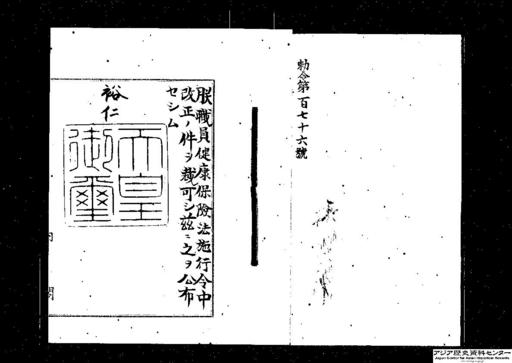 勅令第百七十六號
朕職員健康保險法施行令中
改正ノ件ヲ裁可シ茲ニ之ヲ公布
セシム
裕仁
天皇
御璽
内閣
アジア歴史資料センター
Japan Center for Asian Historical Records